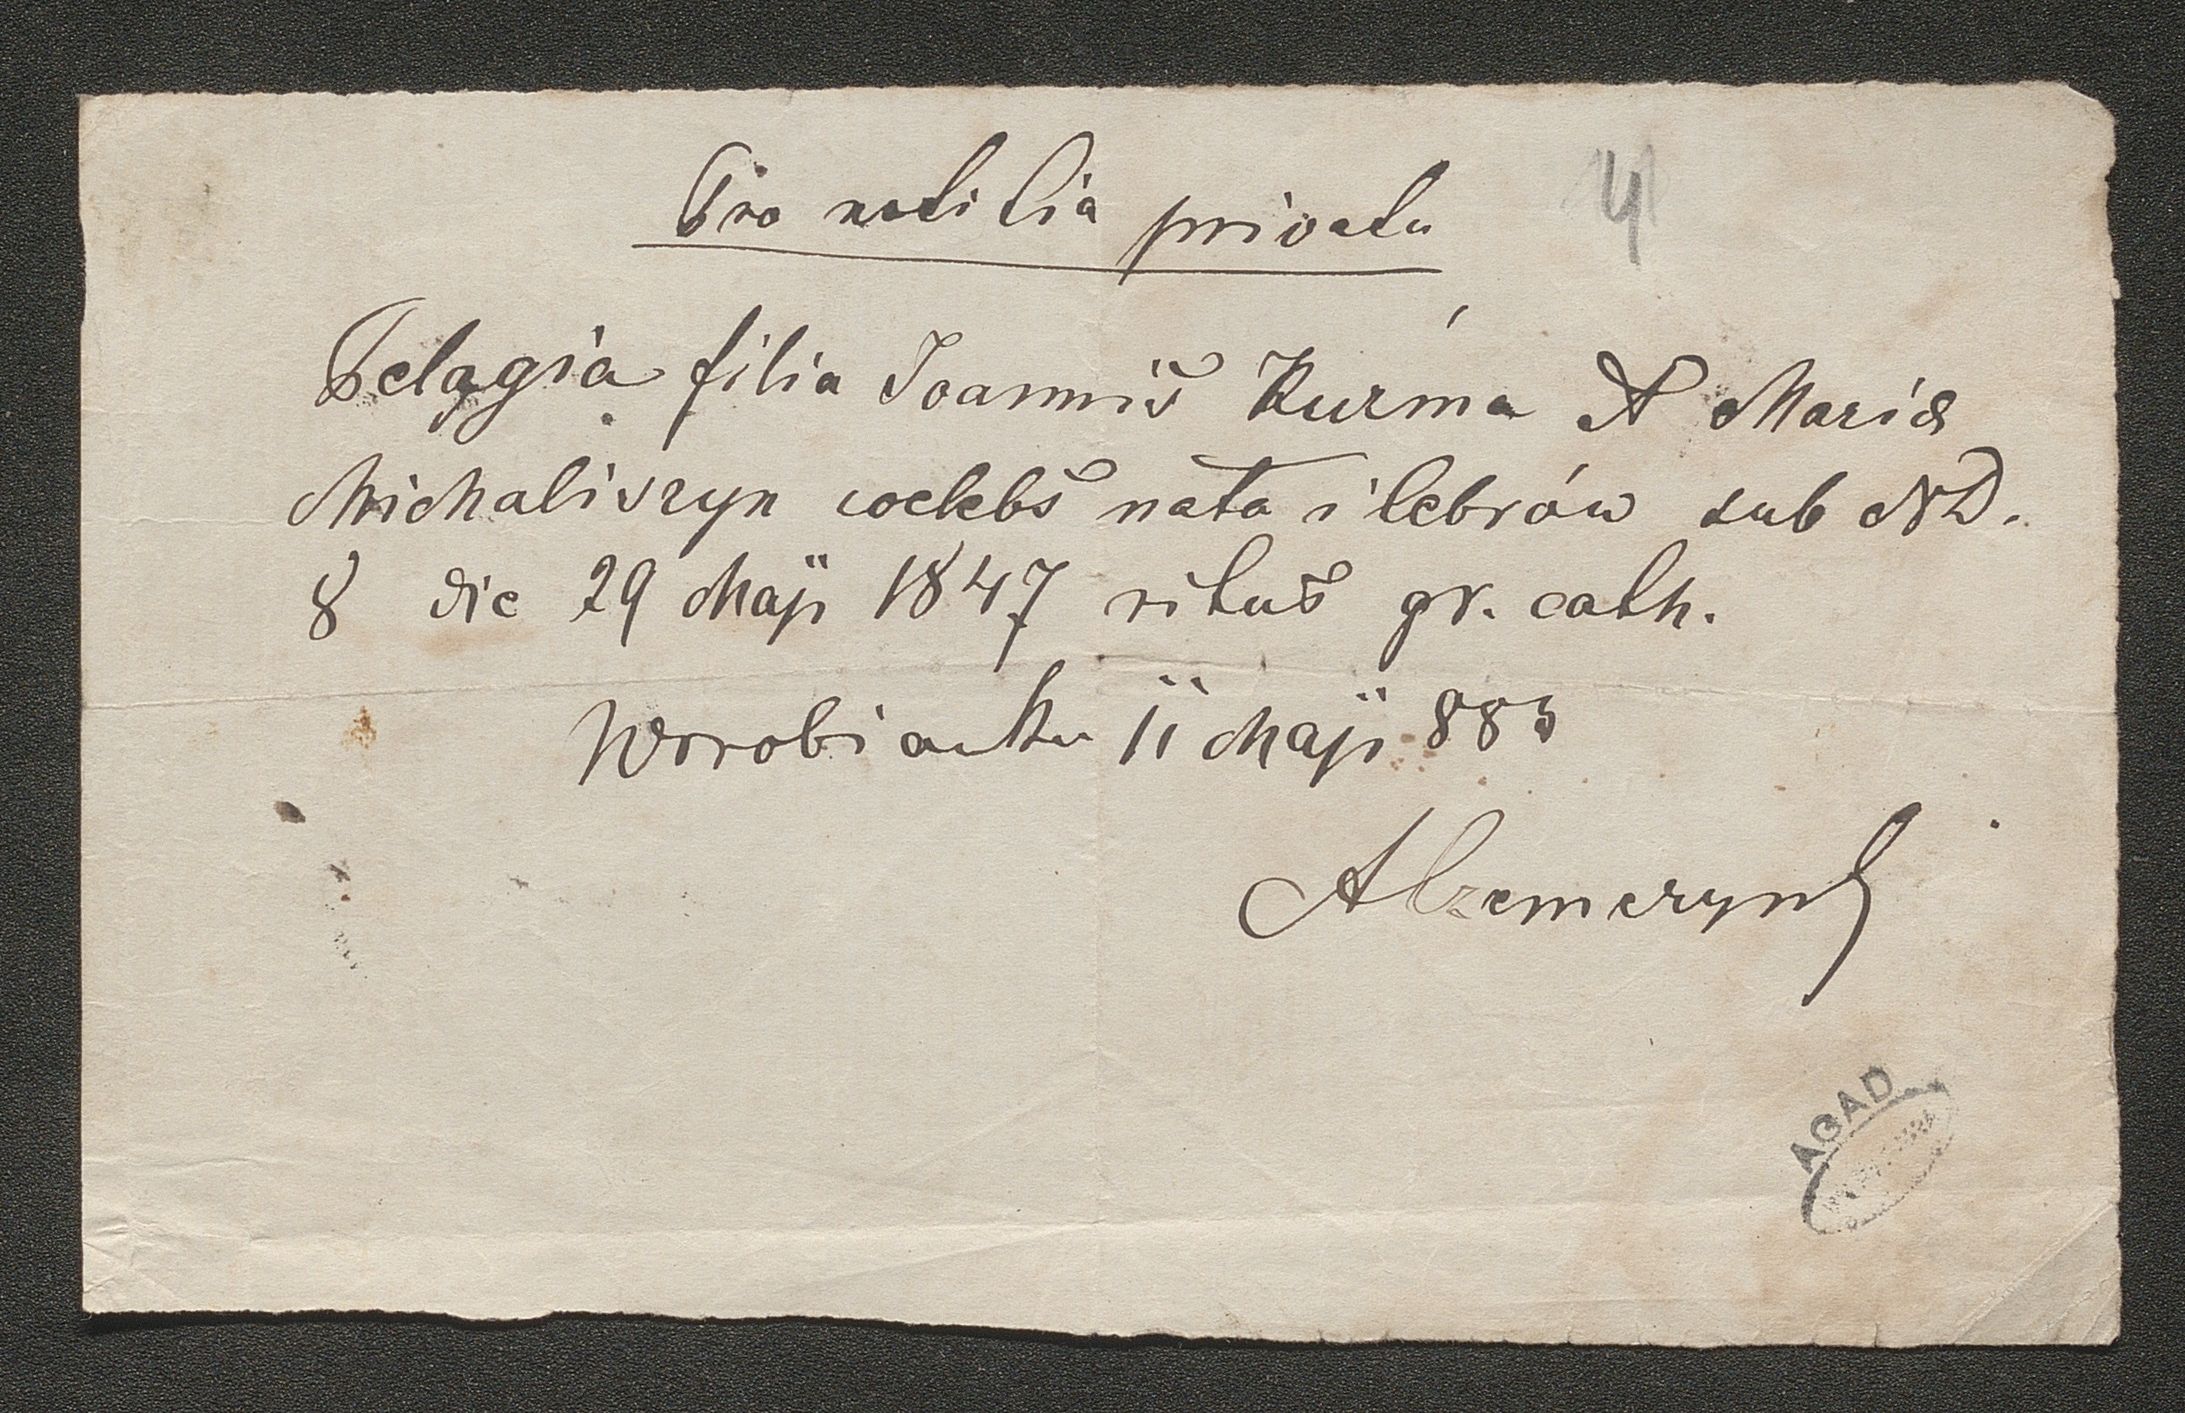 Pro notitia privata
41
Pelagia filia Joannis Kuźma & Maria
Michaliszyn coelebs nata i Zebrów sub ND.
8 die 29 Maji 1847 ritus gr. cath.
Worobiówka 11 Maji 883
AGAD